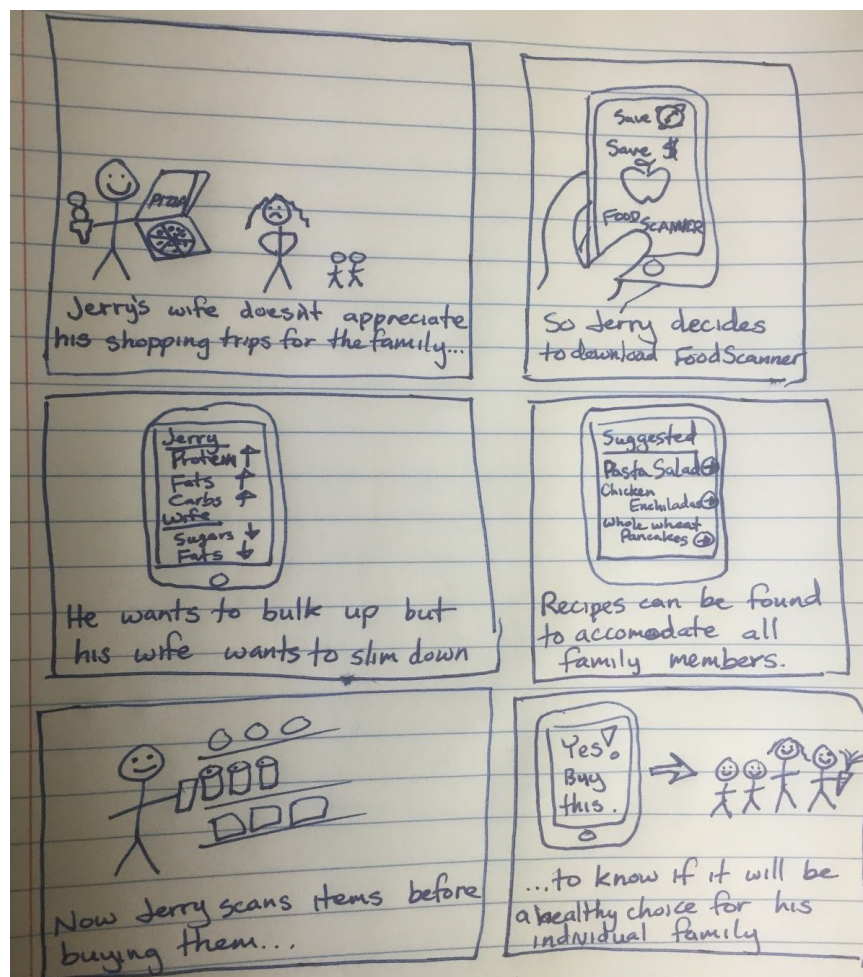 PIZZA
Jerry's wife doesn't appreciate
his shopping trips for the family...
Save
Save $
FOOD SCANNER
So Jerry decides
to download FoodScanner
Jerry
Protein ↑
Fats ↑
Carbs ↑
Wife
Sugars ↓
Fats ↓
He wants to bulk up but
his wife wants to slim down
Suggested
Pasta Salad →
Chicken
Enchiladas →
Whole wheat
Pancakes →
Recipes can be found
to accomodate all
family members.
Now Jerry scans items before
buying them...
Yes!
Buy
this.
...to know if it will be
a healthy choice for his
individual family